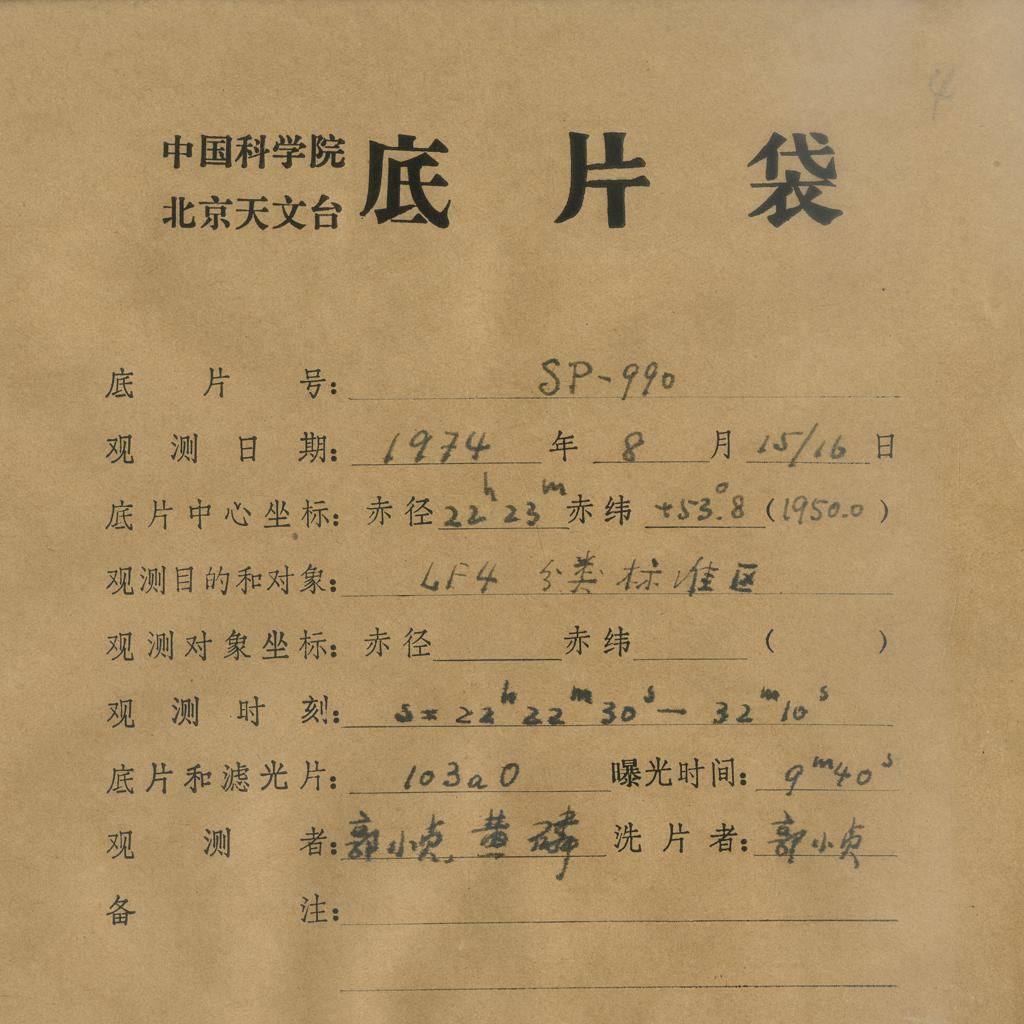 4
中国科学院
北京天文台
底片袋
底片号: SP-990
观测日期: 1974年8月15/16日
底片中心坐标: 赤径22ʰ23ᵐ赤纬+53°.8(1950.0)
观测目的和对象: LF4 分类标准区
观测对象坐标: 赤径 赤纬 ( )
观测时刻: S=22ʰ22ᵐ30ˢ—32ᵐ10ˢ
底片和滤光片: 103aO 曝光时间: 9ᵐ40ˢ
观测者: 郭小贞, 黄磷 洗片者: 郭小贞
备注: